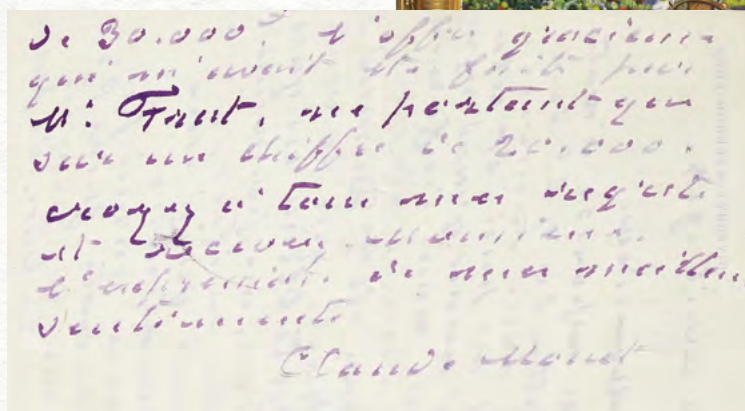 de 30.000 l'offre gracieuse
qui m'avait été faite par
M. Trat, ne portant que
sur un chiffre de 20.000.
croyez à tous mes regrets
et recevez Monsieur.
l'expression de mes meilleurs
sentiments
Claude Monet